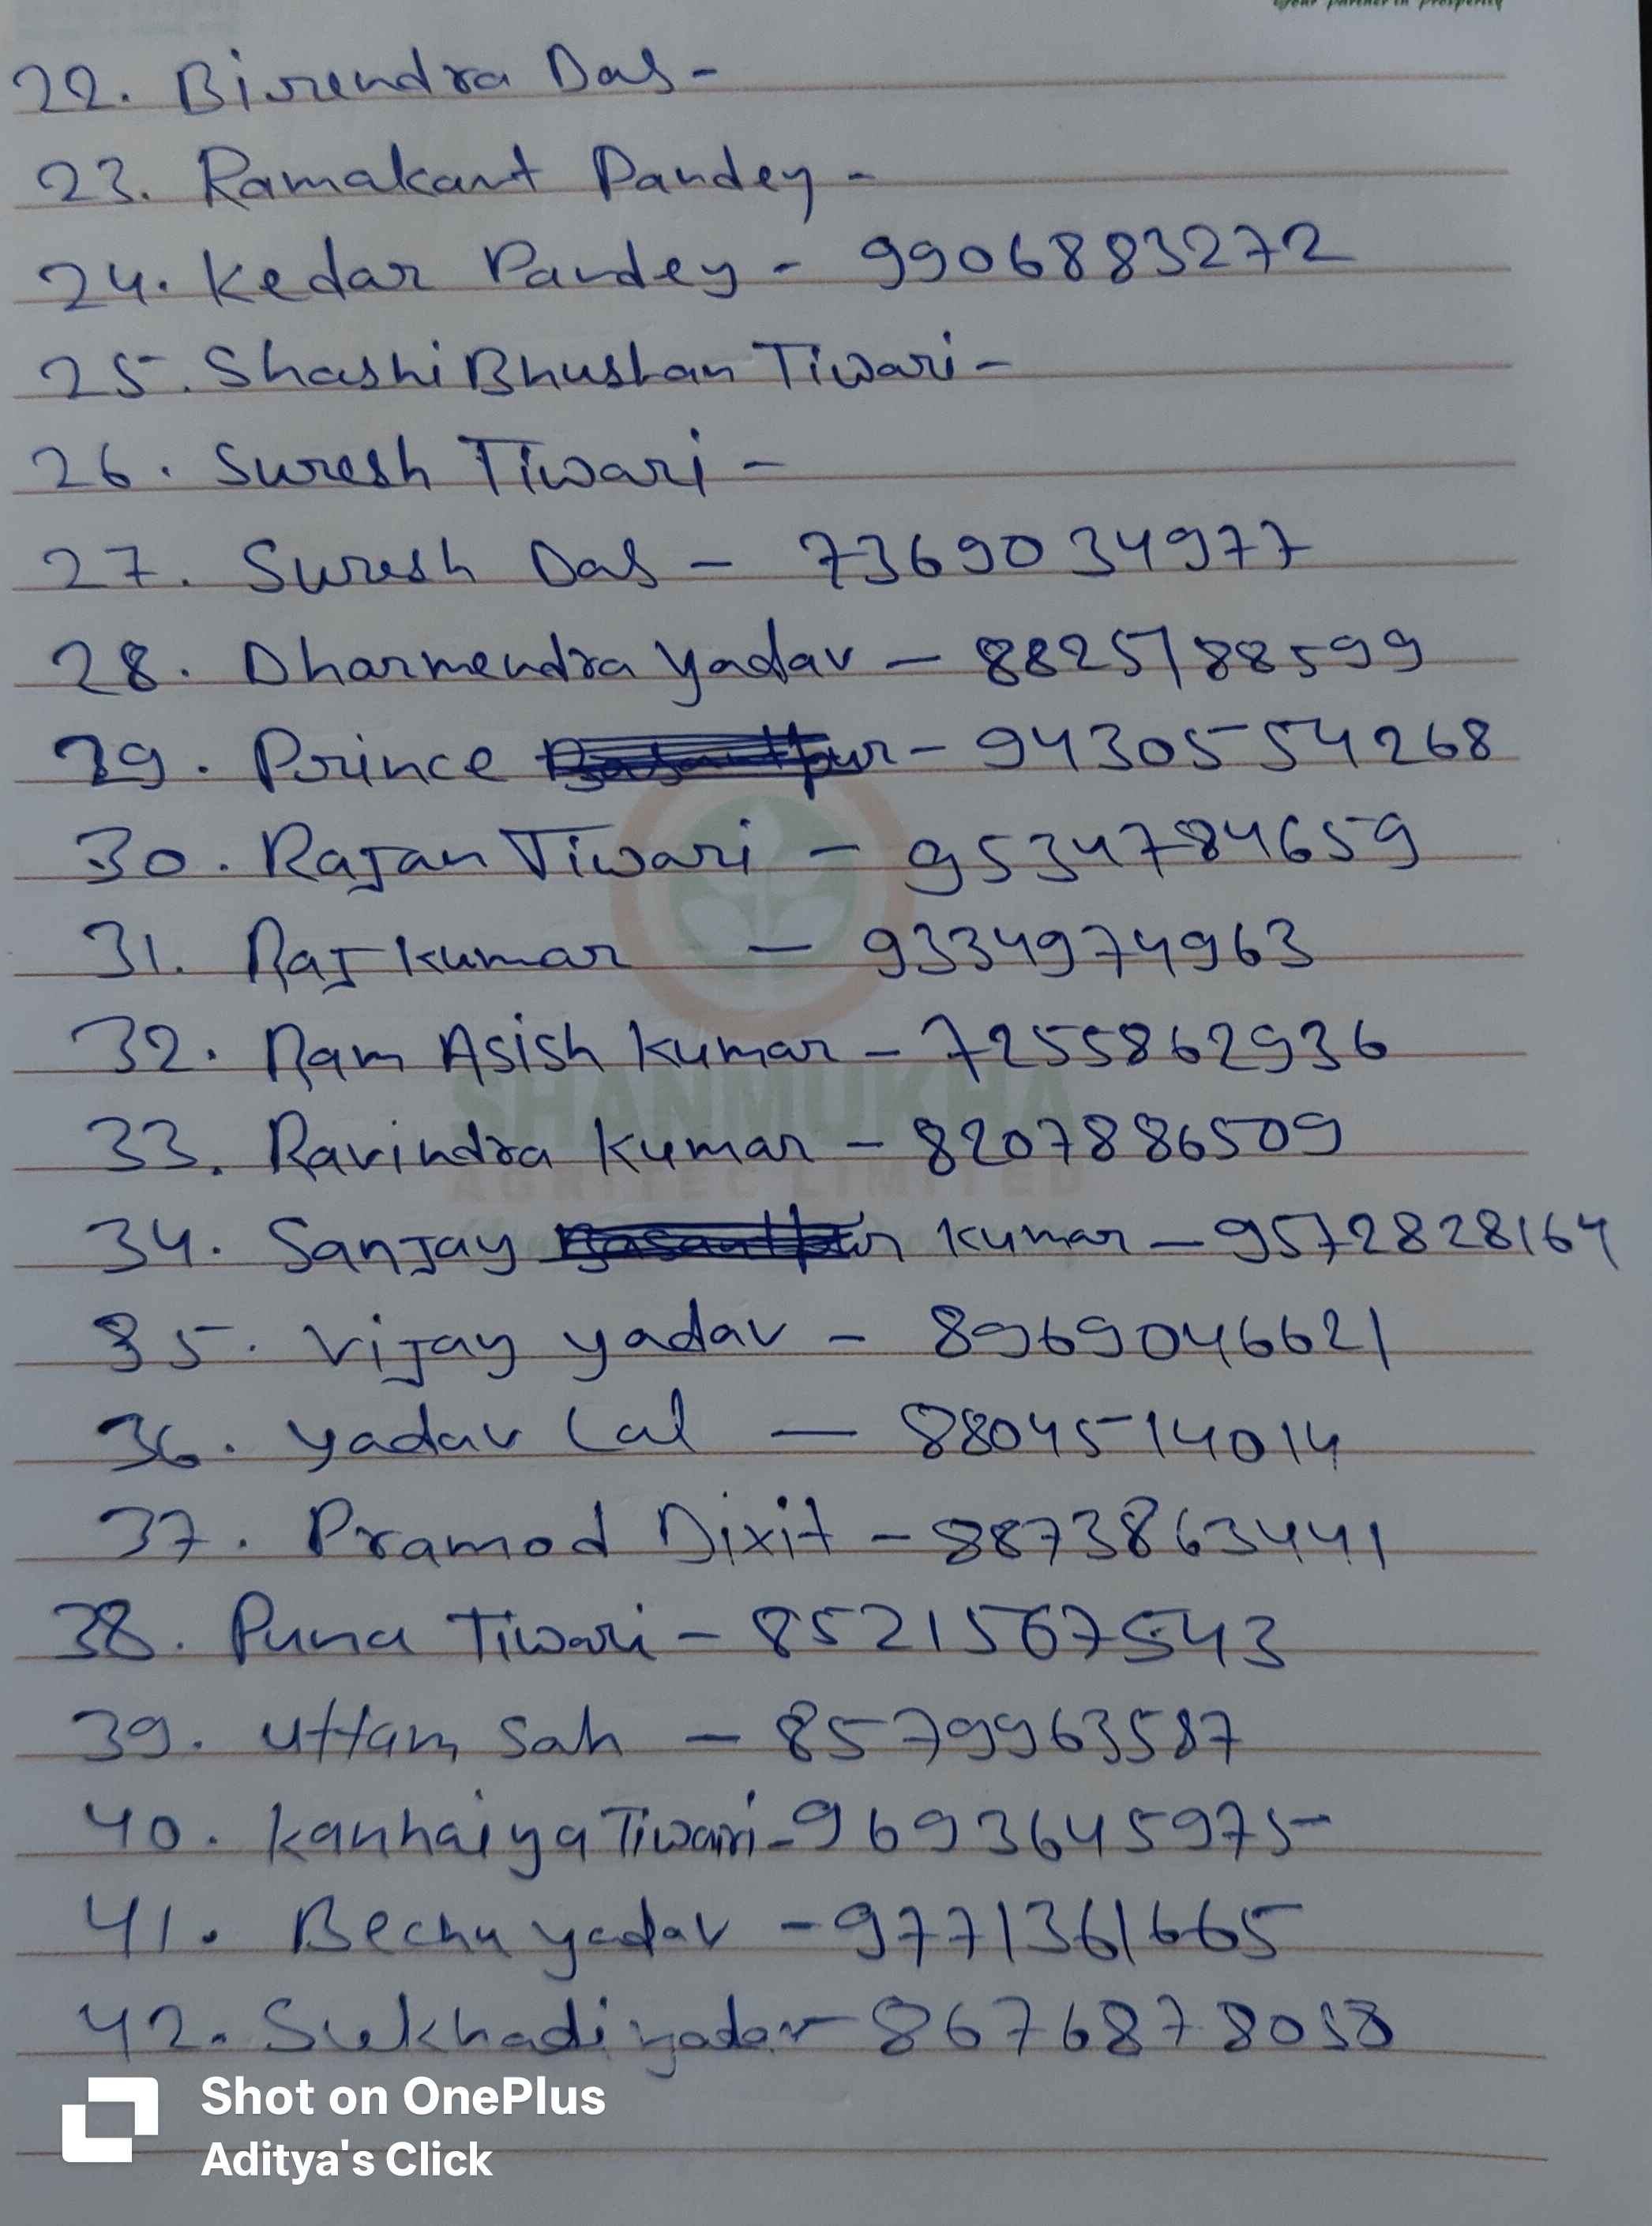 Your partner in prosperity
22. Birendra Das -
23. Ramakant Pandey -
24. Kedar Pandey - 9906883272
25. Shashi Bhushan Tiwari -
26. Suresh Tiwari -
27. Suresh Das - 7369034977
28. Dharmendra Yadav - 8825188599
29. Prince - 9430554268
30. Rajan Tiwari - 9534784659
31. Raj Kumar - 9334974963
32. Ram Asish Kumar - 7255862936
33. Ravindra Kumar - 8207886509
34. Sanjay Kumar - 9572828164
35. Vijay Yadav - 8969046621
36. Yadav Lal - 8804514014
37. Pramod Dixit - 8873863441
38. Puna Tiwari - 8521567543
39. Uttam Sah - 8579963587
40. Kanhaiya Tiwari - 9693645975
41. Bechu Yadav - 9771361665
42. Sukhadi Yadav - 8676878058
SHANMUKHA
AGRITEC LIMITED
Shot on OnePlus
Aditya's Click